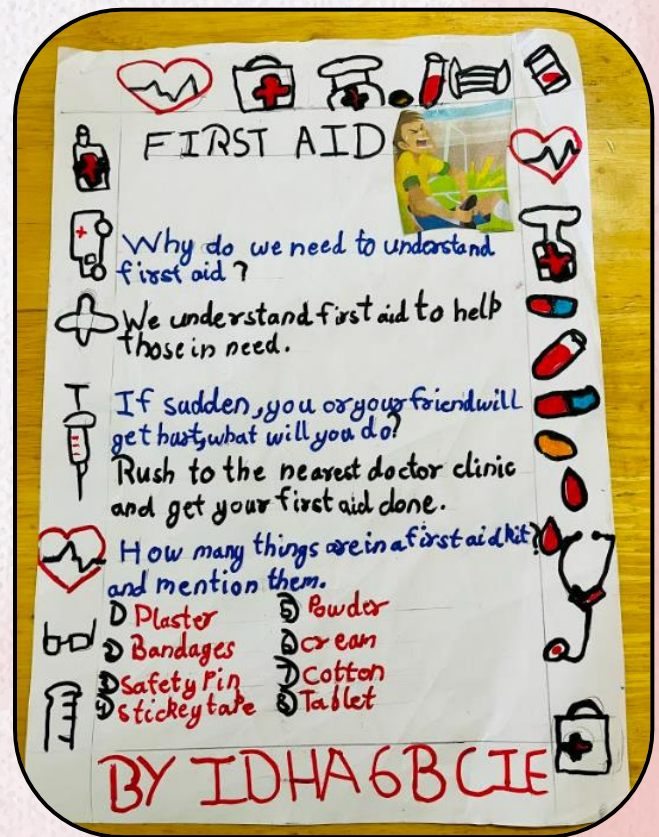 FIRST AID
Why do we need to understand
first aid ?
We understand first aid to help
those in need.
If sudden, you or your friend will
get hurt, what will you do?
Rush to the nearest doctor clinic
and get your first aid done.
How many things are in a first aid kit?
and mention them.
1) Plaster
2) Bandages
3) Safety Pin
4) stickey tape
5) Powder
6) cream
7) Cotton
8) Tablet
BY IDHA 6B CIE